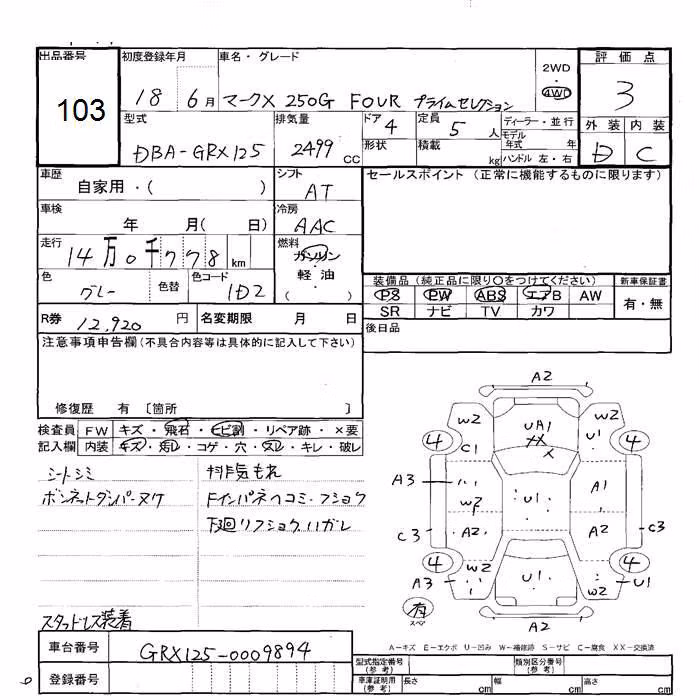 出品番号
103
初度登録年月
18 6月
車名・グレード
マークX 250G FOUR プライムセレクション
2WD
4WD
評価点
3
外装 内装
D C
型式
DBA-GRX125
排気量
2499 CC
ドア 4
形状
定員 5 人
積載 kg
ディーラー・並行
モデル年式 年
ハンドル 左・右
車歴
自家用・( )
シフト
AT
車検
年 月( 日)
冷房
AAC
走行
14万0千778 km
燃料
ガソリン
・
軽油
( )
色
グレー
色替
色コード
1D2
セールスポイント (正常に機能するものに限ります)
装備品(純正品に限り○をつけてください)
PS PW ABS エアB AW
SR ナビ TV カワ
新車保証書
有・無
後日品
R券 12,920 円
名変期限 月 日
注意事項申告欄(不具合内容等は具体的に記入して下さい)
修復歴 有 〔箇所 〕
検査員記入欄
FW キズ・飛石・ヒビ割・リペア跡・×要
内装 キズ・汚レ・コゲ・穴・スレ・キレ・破レ
シートシミ
ボンネットダンパーヌケ
スタッドレス装着
排気もれ
Fインパネヘコミ・フショウ
下廻リフショウ、ハガレ
A2
W2
C1
UA1
XX
X
W2
U1
4
4
A3
W2
U1
A1
C3
A2
A2
C3
4
4
A3
W2
U1
W2
U1
A2
有
スペア
A-キズ E-エクボ U-凹み W-補修跡 S-サビ C-腐食 XX-交換済
車台番号
GRX125-0009894
登録番号
型式指定番号(参考)
類別区分番号(参考)
車庫証明用(参考)
長さ cm
幅 cm
高さ cm